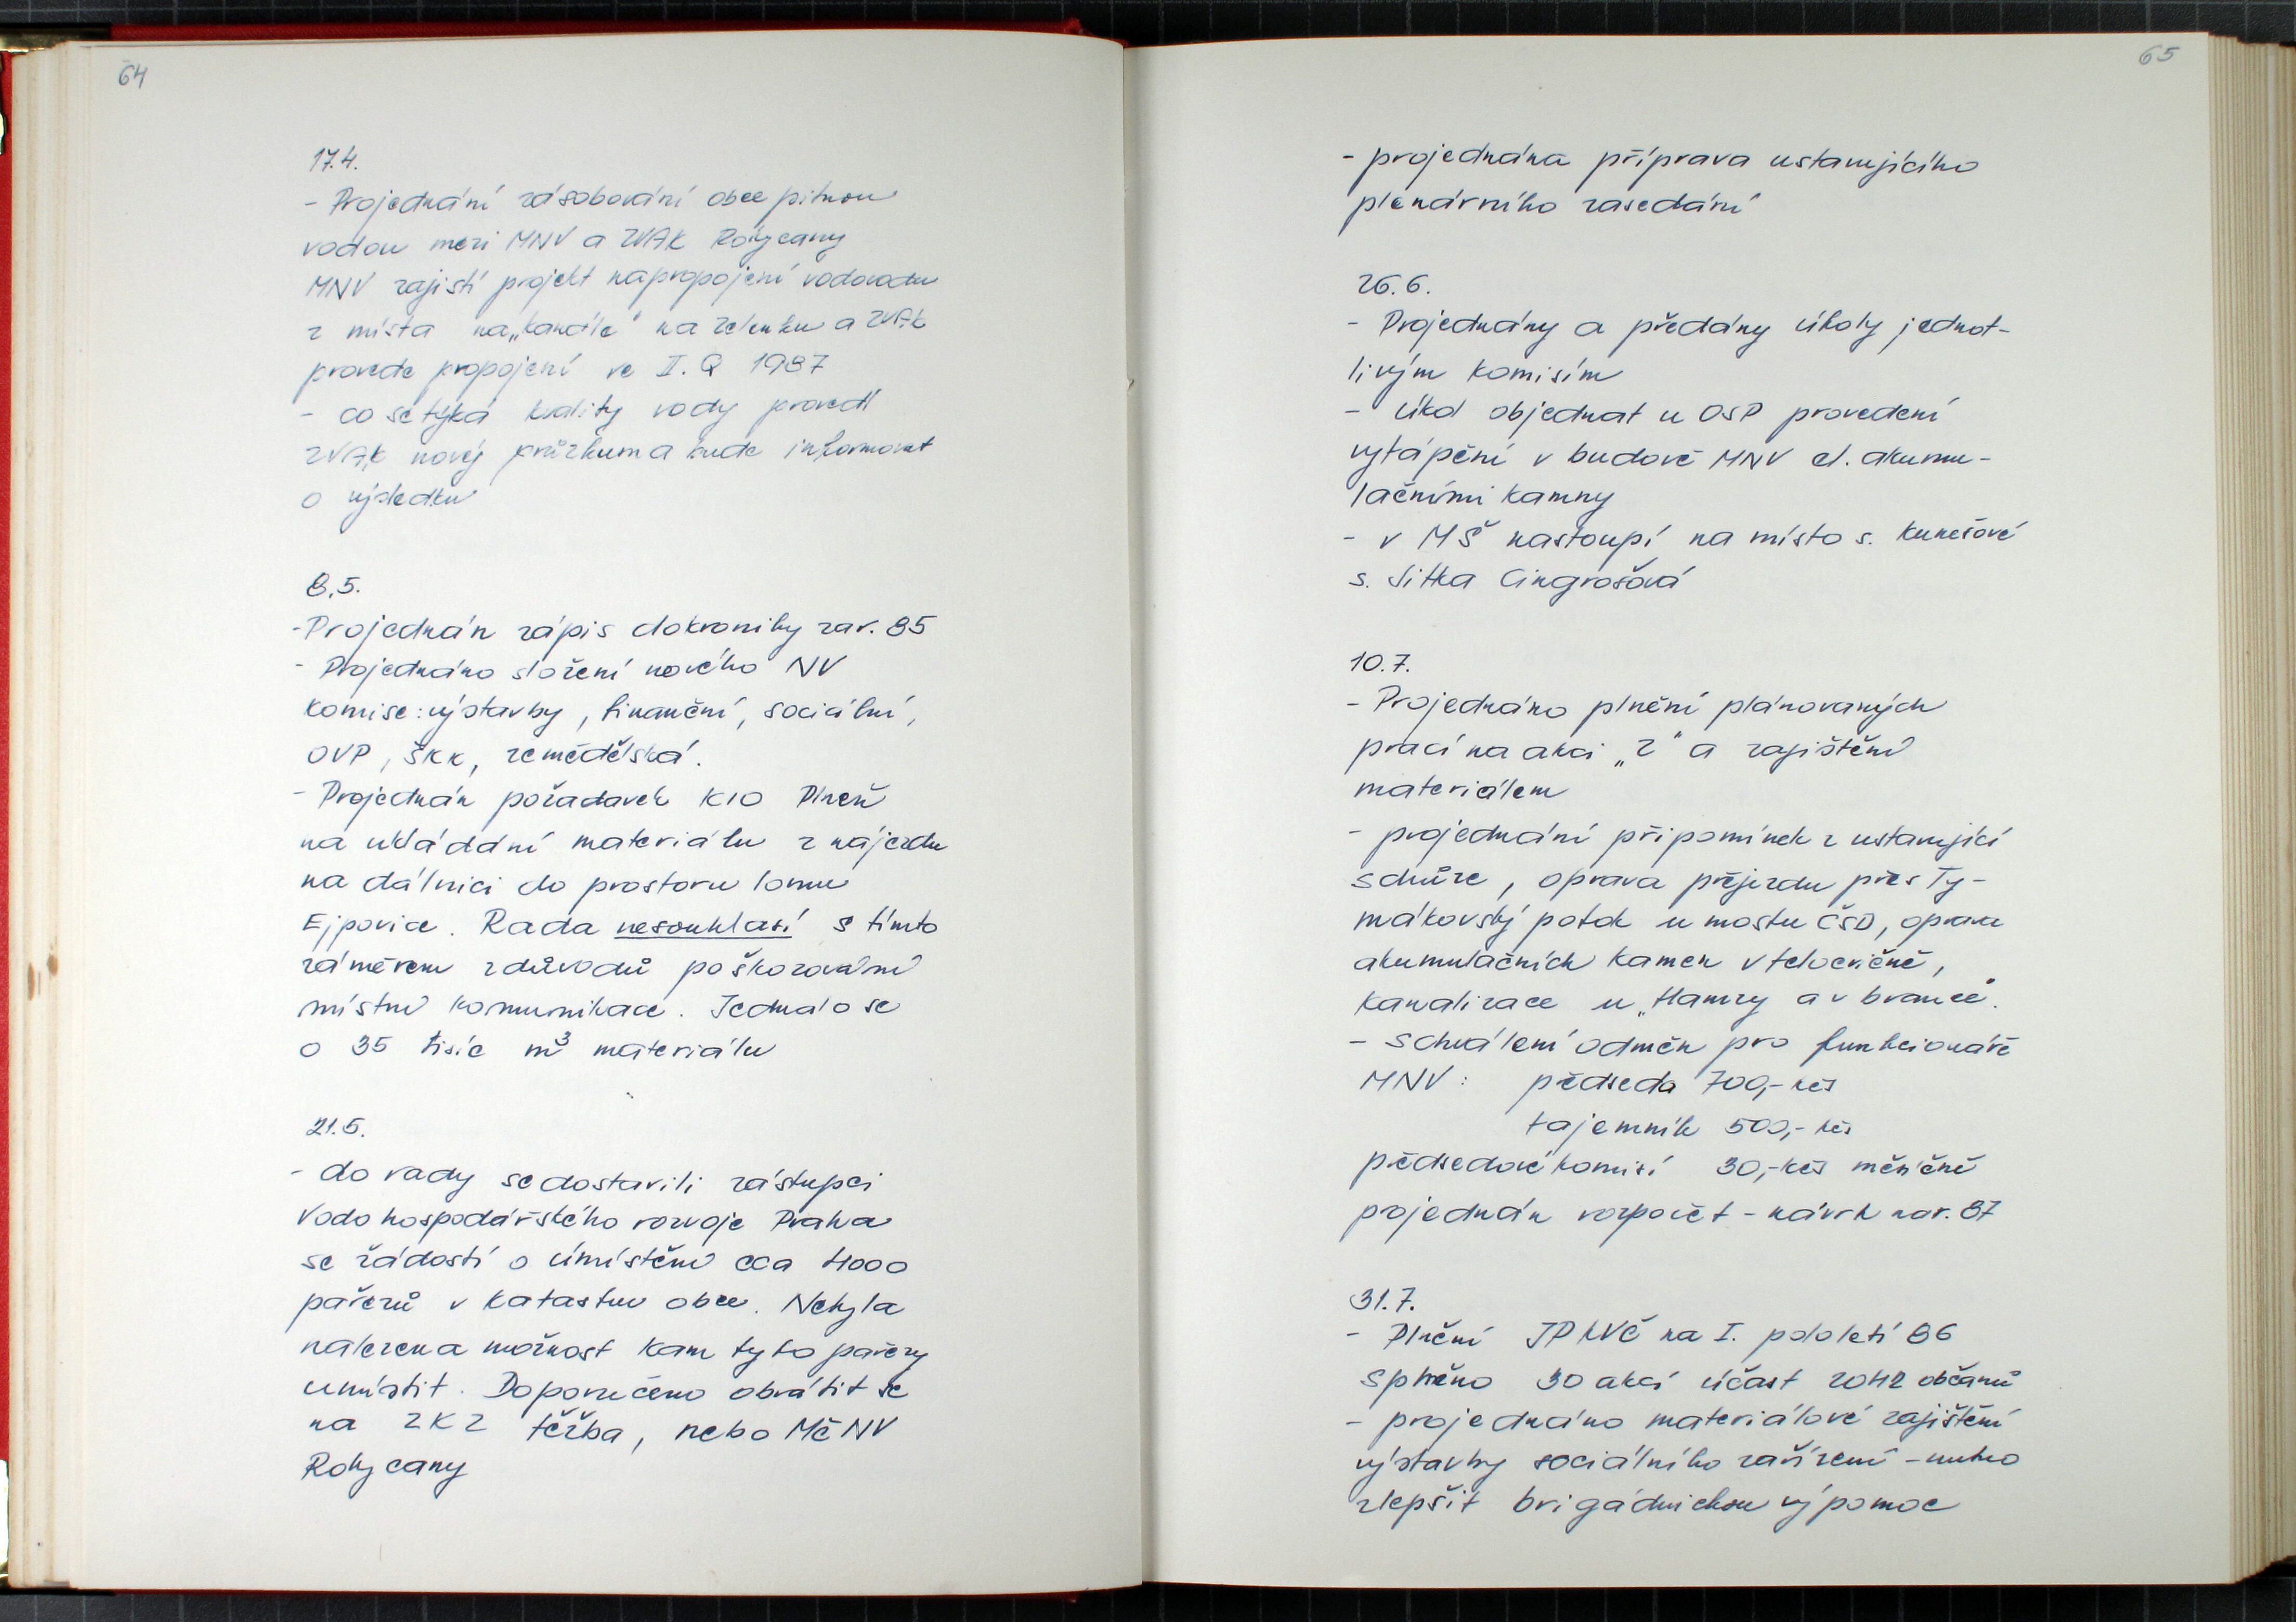 64
17.4.
- Projednání zásobování obce pitnou
vodou mezi MNV a ZVAK Rokycany
MNV zajistí projekt napropojení vodovodu
z místa na "kandle" na Zelenku a ZVAK
provede propojení ve II.Q 1987
- co se týká kvality vody provedl
ZVAK nový průzkum a bude informovat
o výsledku
8.5.
- Projednán zápis dokroniky za r. 85
- Projednáno složení nového NV
komise: výstavby, finanční, sociální,
OVP, ŠKK, zemědělská.
- Projednán požadavek KIO Plzeň
na ukládání materiálu z nájezdu
na dálnici do prostoru lomu
Ejpovice. Rada nesouhlasí s tímto
záměrem zdůvodů poškozování
místní komunikace. Jednalo se
o 35 tisíc m³ materiálu
21.5.
- do rady sedostavili zástupci
Vodohospodářského rozvoje Praha
se žádostí o úmístění cca 4000
pařezů v katastru obce. Nebyla
nalezena možnost kam tyto pařezy
umístit. Doporučeno obrátit se
na ZKZ těžba, nebo MěNV
Rokycany
65
- projednána příprava ustavujícího
plenárního zasedání
26.6.
- Projednány a předány úkoly jednot-
livým komisím
- úkol objednat u OSP provedení
vytápění v budově MNV el. akumu-
lačními kamny
- v MŠ nastoupí na místo s. Kunešové
s. Jitka Cingrošová
10.7.
- Projednáno plnění plánovaných
prací na akci "Z" a zajištění
materiálem
- projednání připomínek z ustavující
schůze, oprava přejezdu přes Ty-
mákovský potok u mostu ČSD, oprava
akumulačních kamen v tělocvičně,
kanalizace u "Hamzy a v brance".
- schválení odměn pro funkcionáře
MNV: předseda 700,- kčs
tajemník 500,- kčs
předsedové komisí 30,- kčs měsíčně
projednán rozpočet - návrh na r. 87
31.7.
- Plnění JPKVČ na I. pololetí 86
splněno 30 akcí účast 2042 občanů
- projednáno materiálové zajištění
výstavby sociálního zařízení - nutno
zlepšit brigádnickou výpomoc